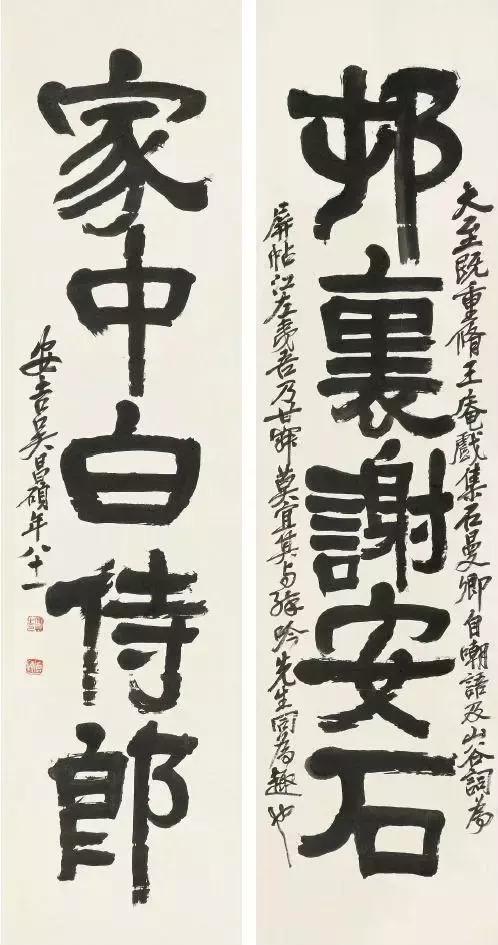 邨裏謝安石
大至既重脩王庵戲集石曼卿自嘲語及山谷詞為
屏帖江左夷吾乃莫宜其与吟先生同為趣也
家中白侍郎
安吉吴昌碩年八十一